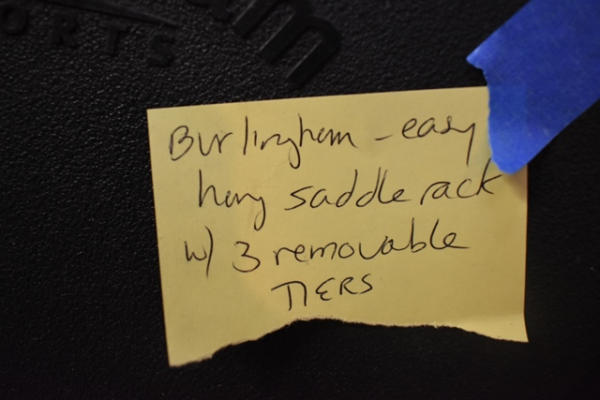 ORTS
am
Burlingham - easy
hang saddle rack
w/ 3 removable
TIERS